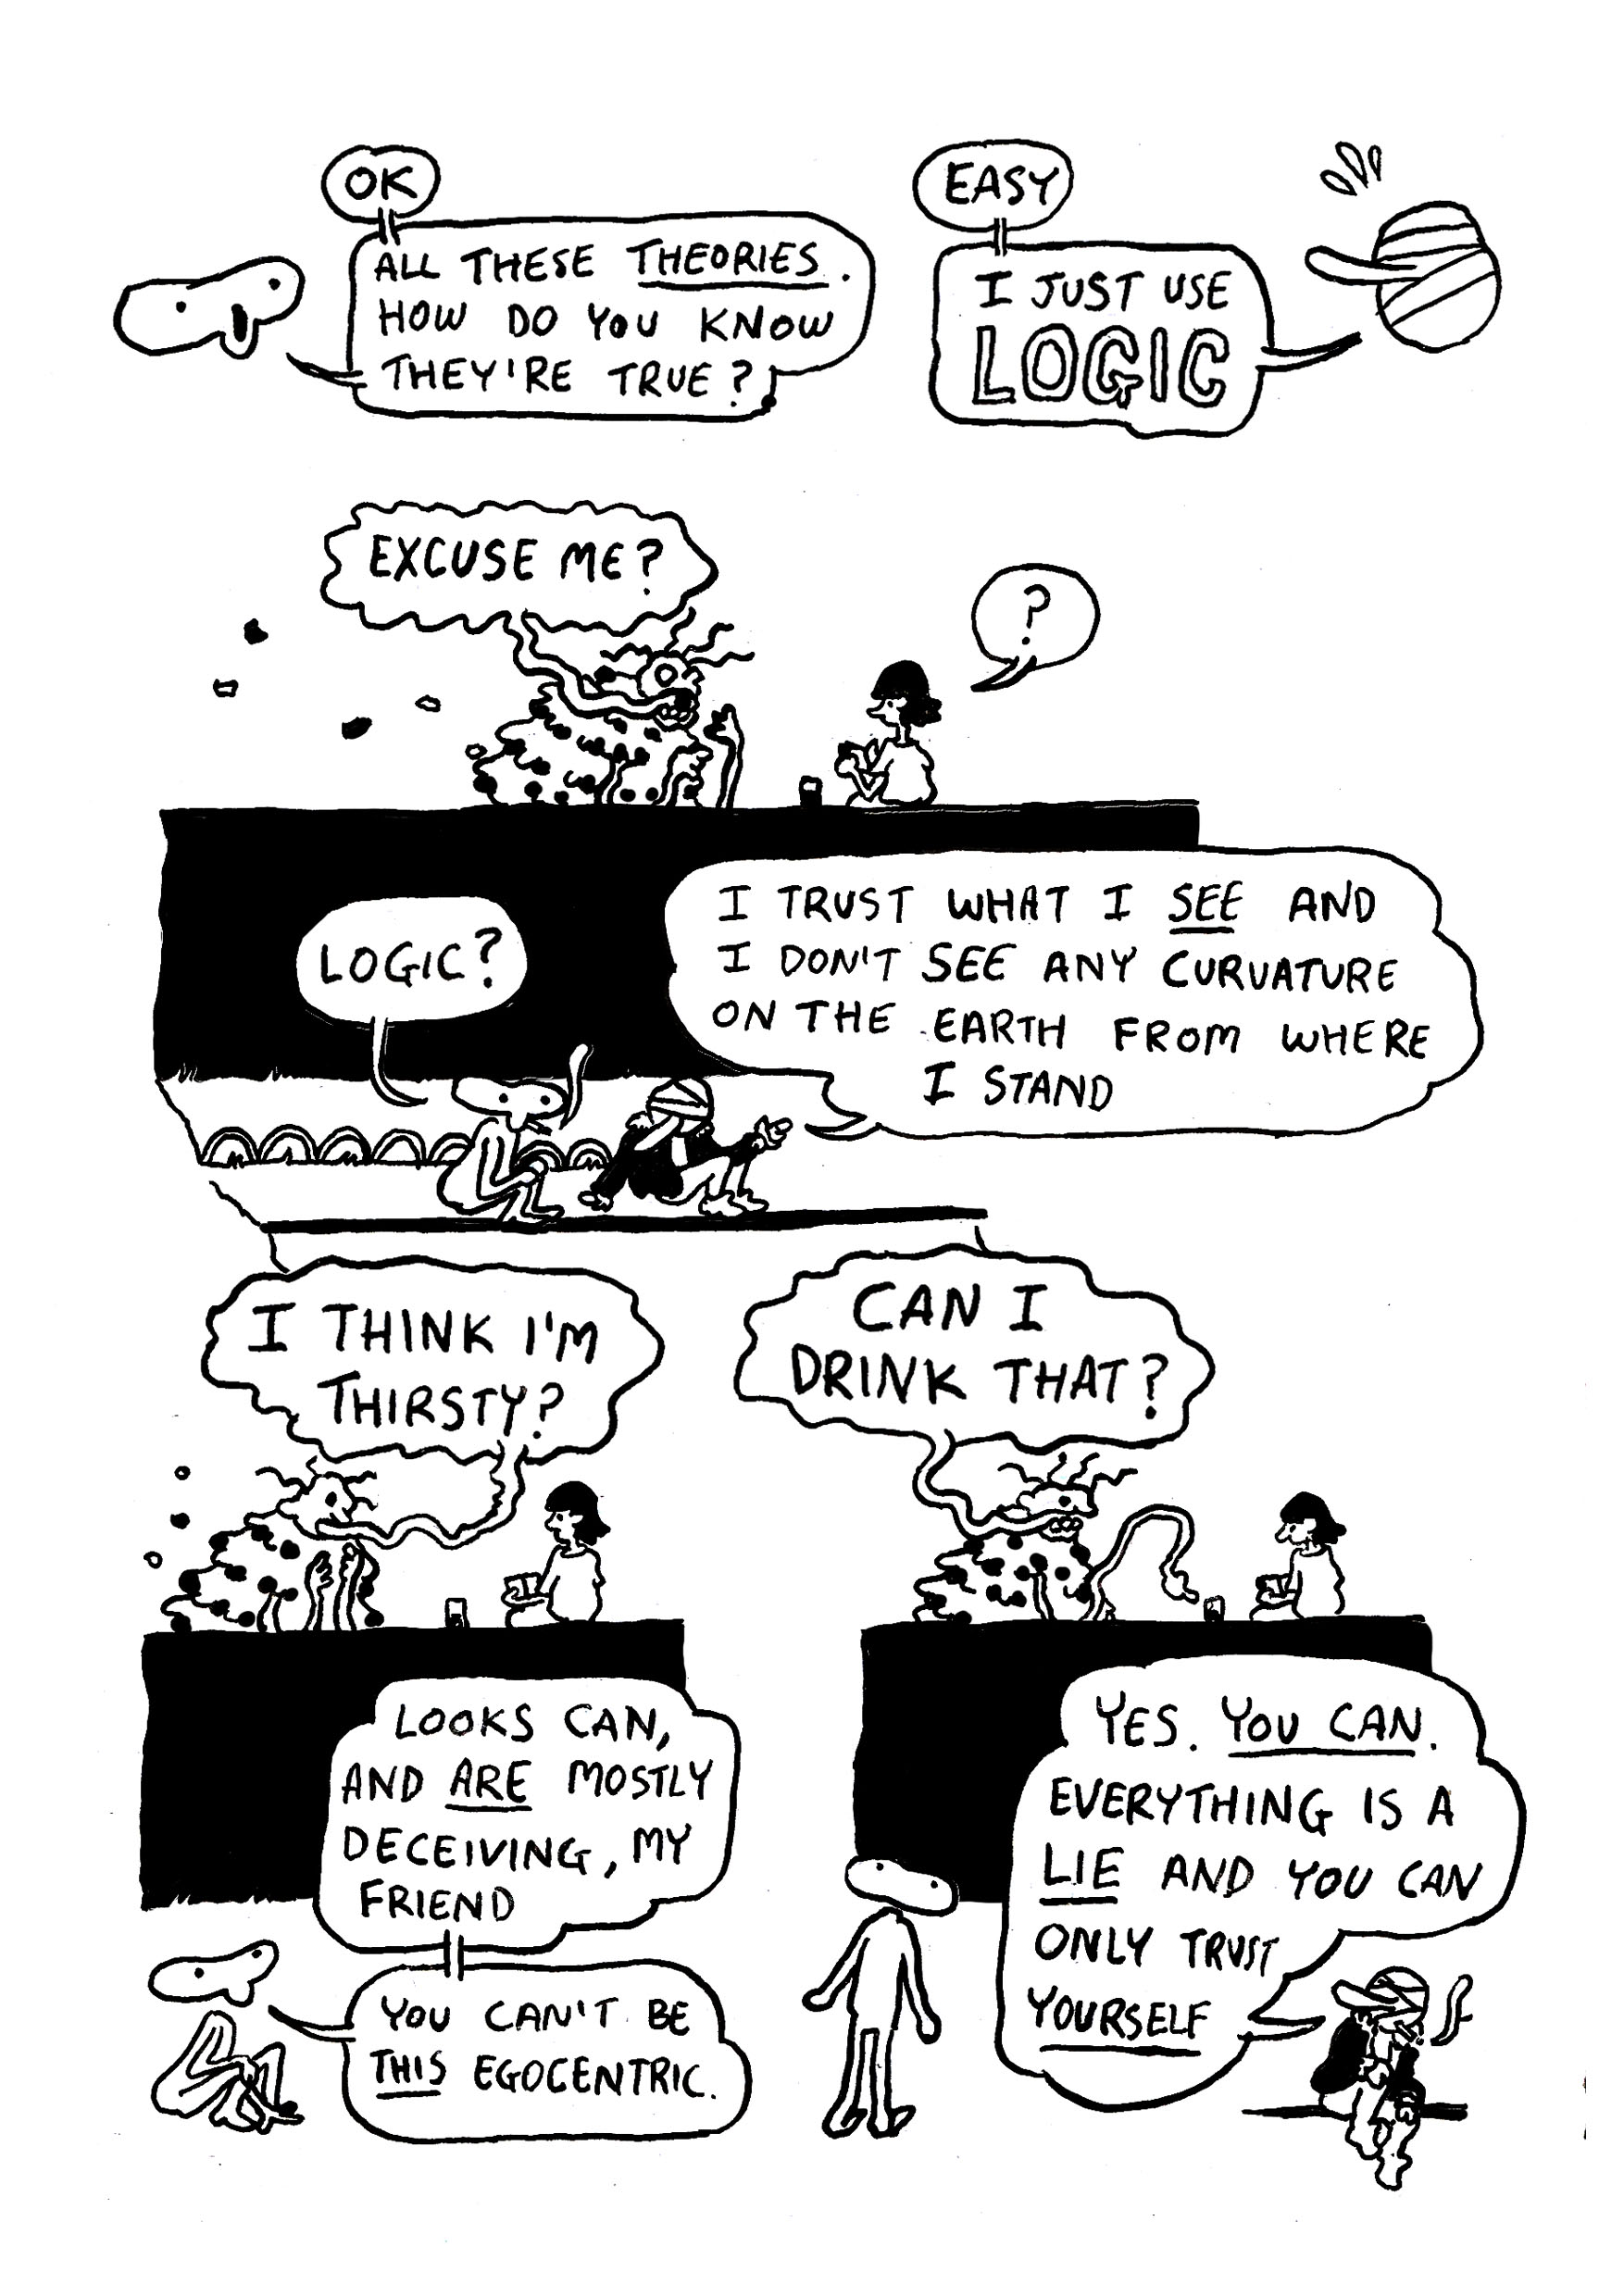 OK
ALL THESE THEORIES.
HOW DO YOU KNOW
THEY'RE TRUE?
EASY
I JUST USE
LOGIC
EXCUSE ME?
?
LOGIC?
I TRUST WHAT I SEE AND
I DON'T SEE ANY CURVATURE
ON THE EARTH FROM WHERE
I STAND
I THINK I'M
THIRSTY?
CAN I
DRINK THAT?
LOOKS CAN,
AND ARE MOSTLY
DECEIVING, MY
FRIEND
YOU CAN'T BE
THIS EGOCENTRIC.
YES. YOU CAN.
EVERYTHING IS A
LIE AND YOU CAN
ONLY TRUST
YOURSELF